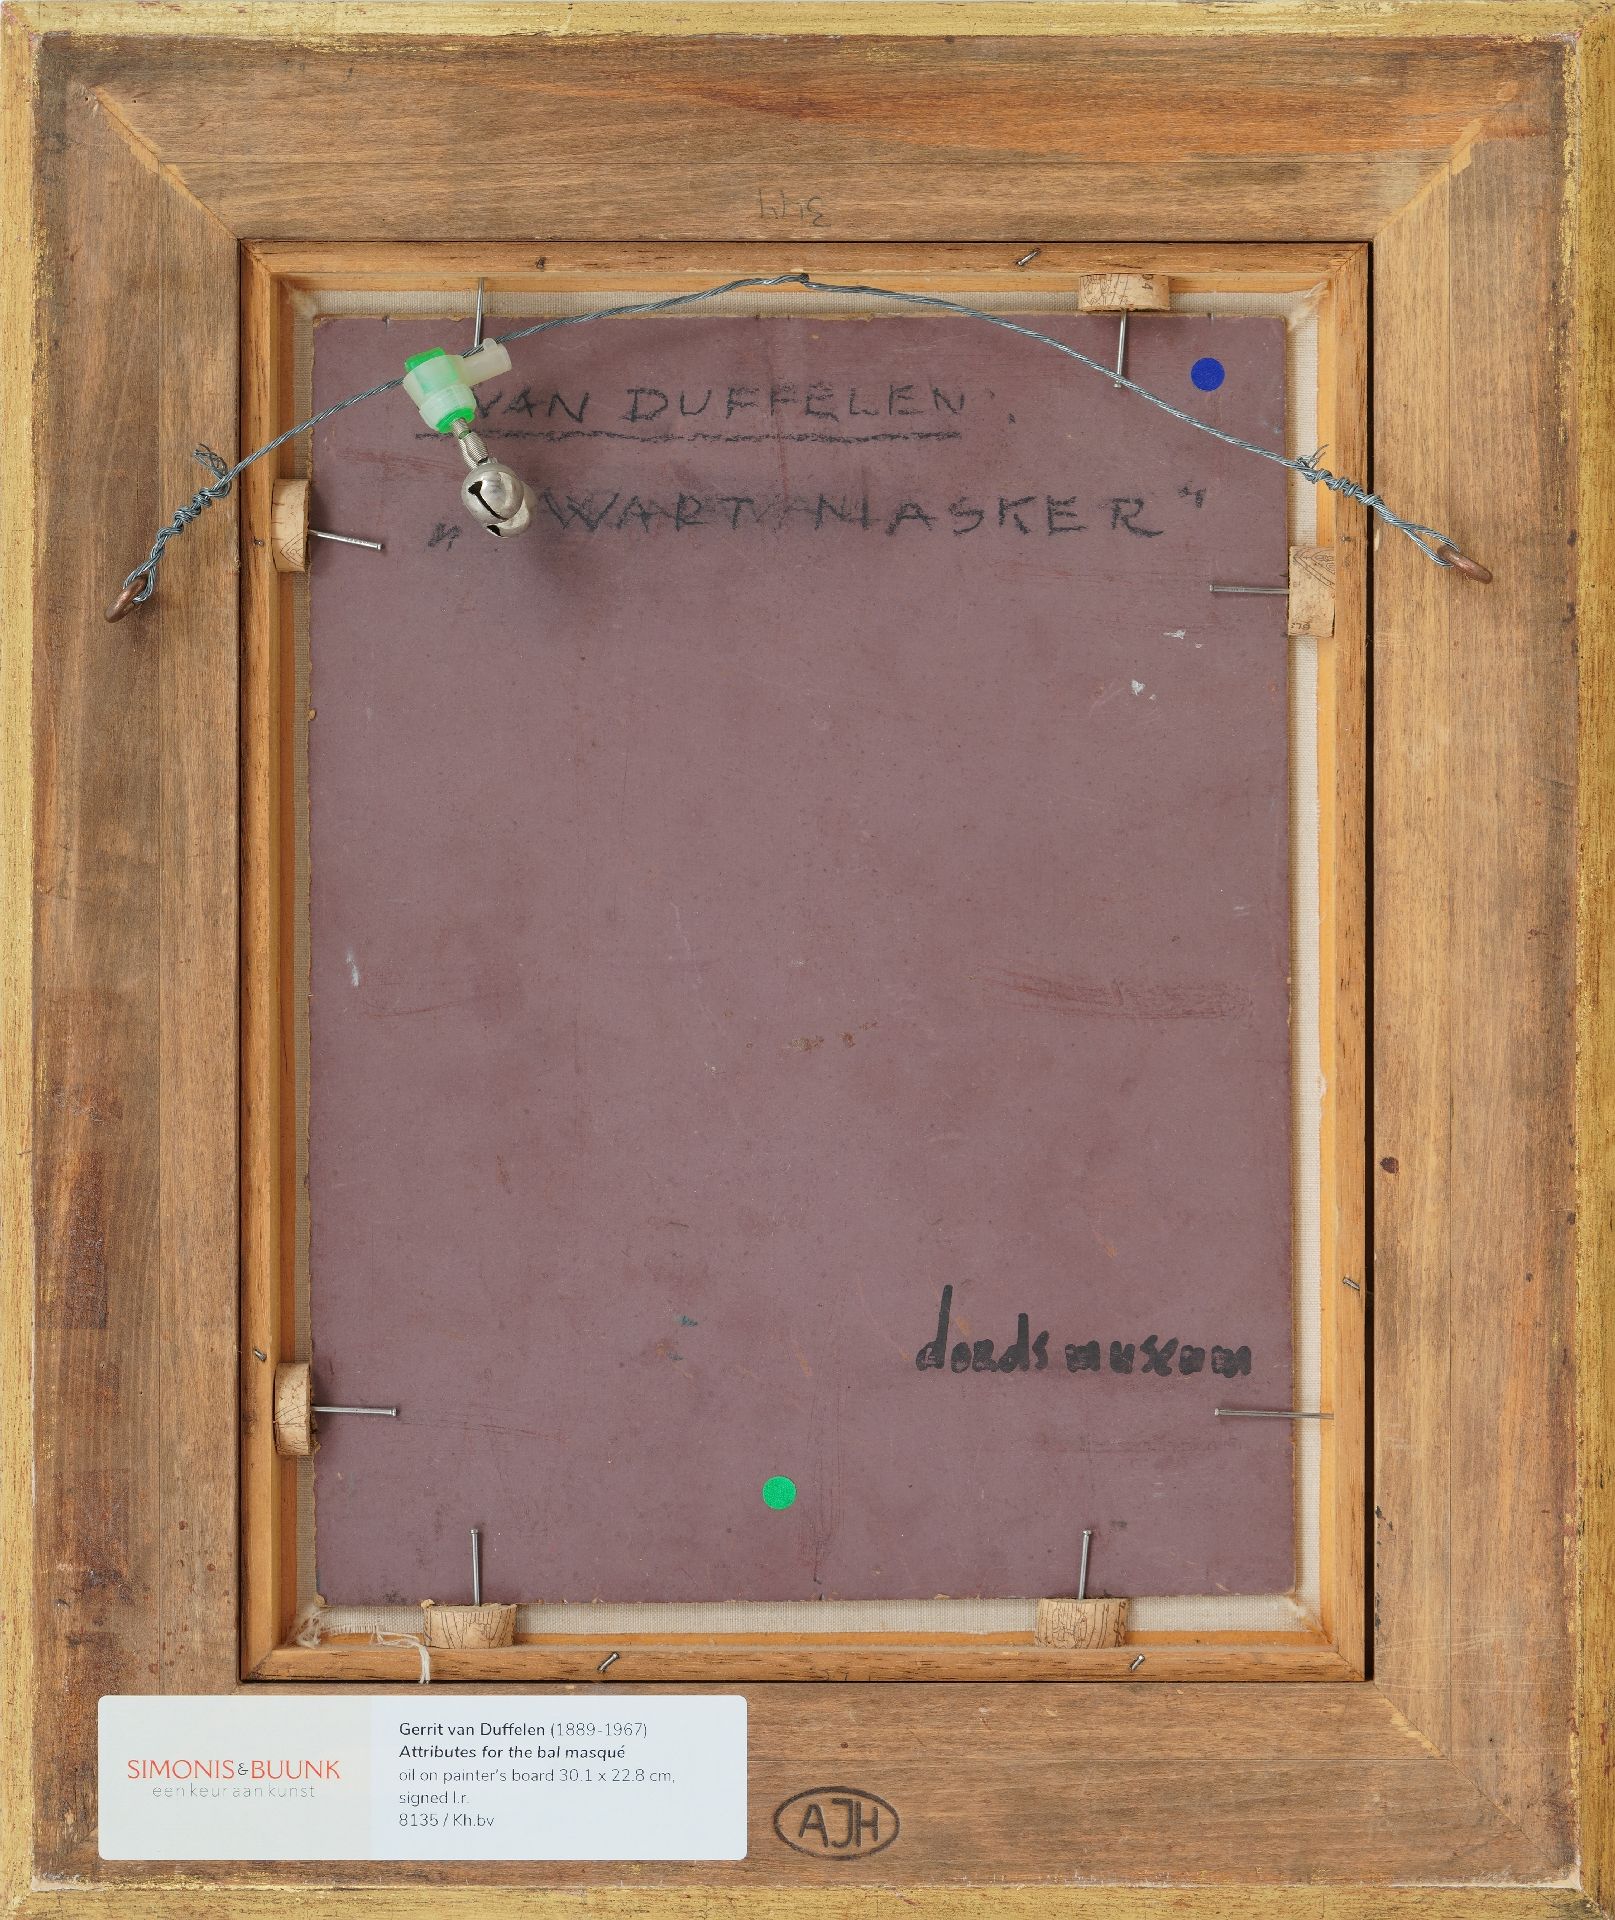 VAN DUFFELEN.
dordsmuseum
SIMONIS&BUUNK
een keur aan kunst
Gerrit van Duffelen (1889-1967)
Attributes for the bal masqué
oil on painter's board 30.1 x 22.8 cm,
signed l.r.
8135 / Kh.bv
AJH